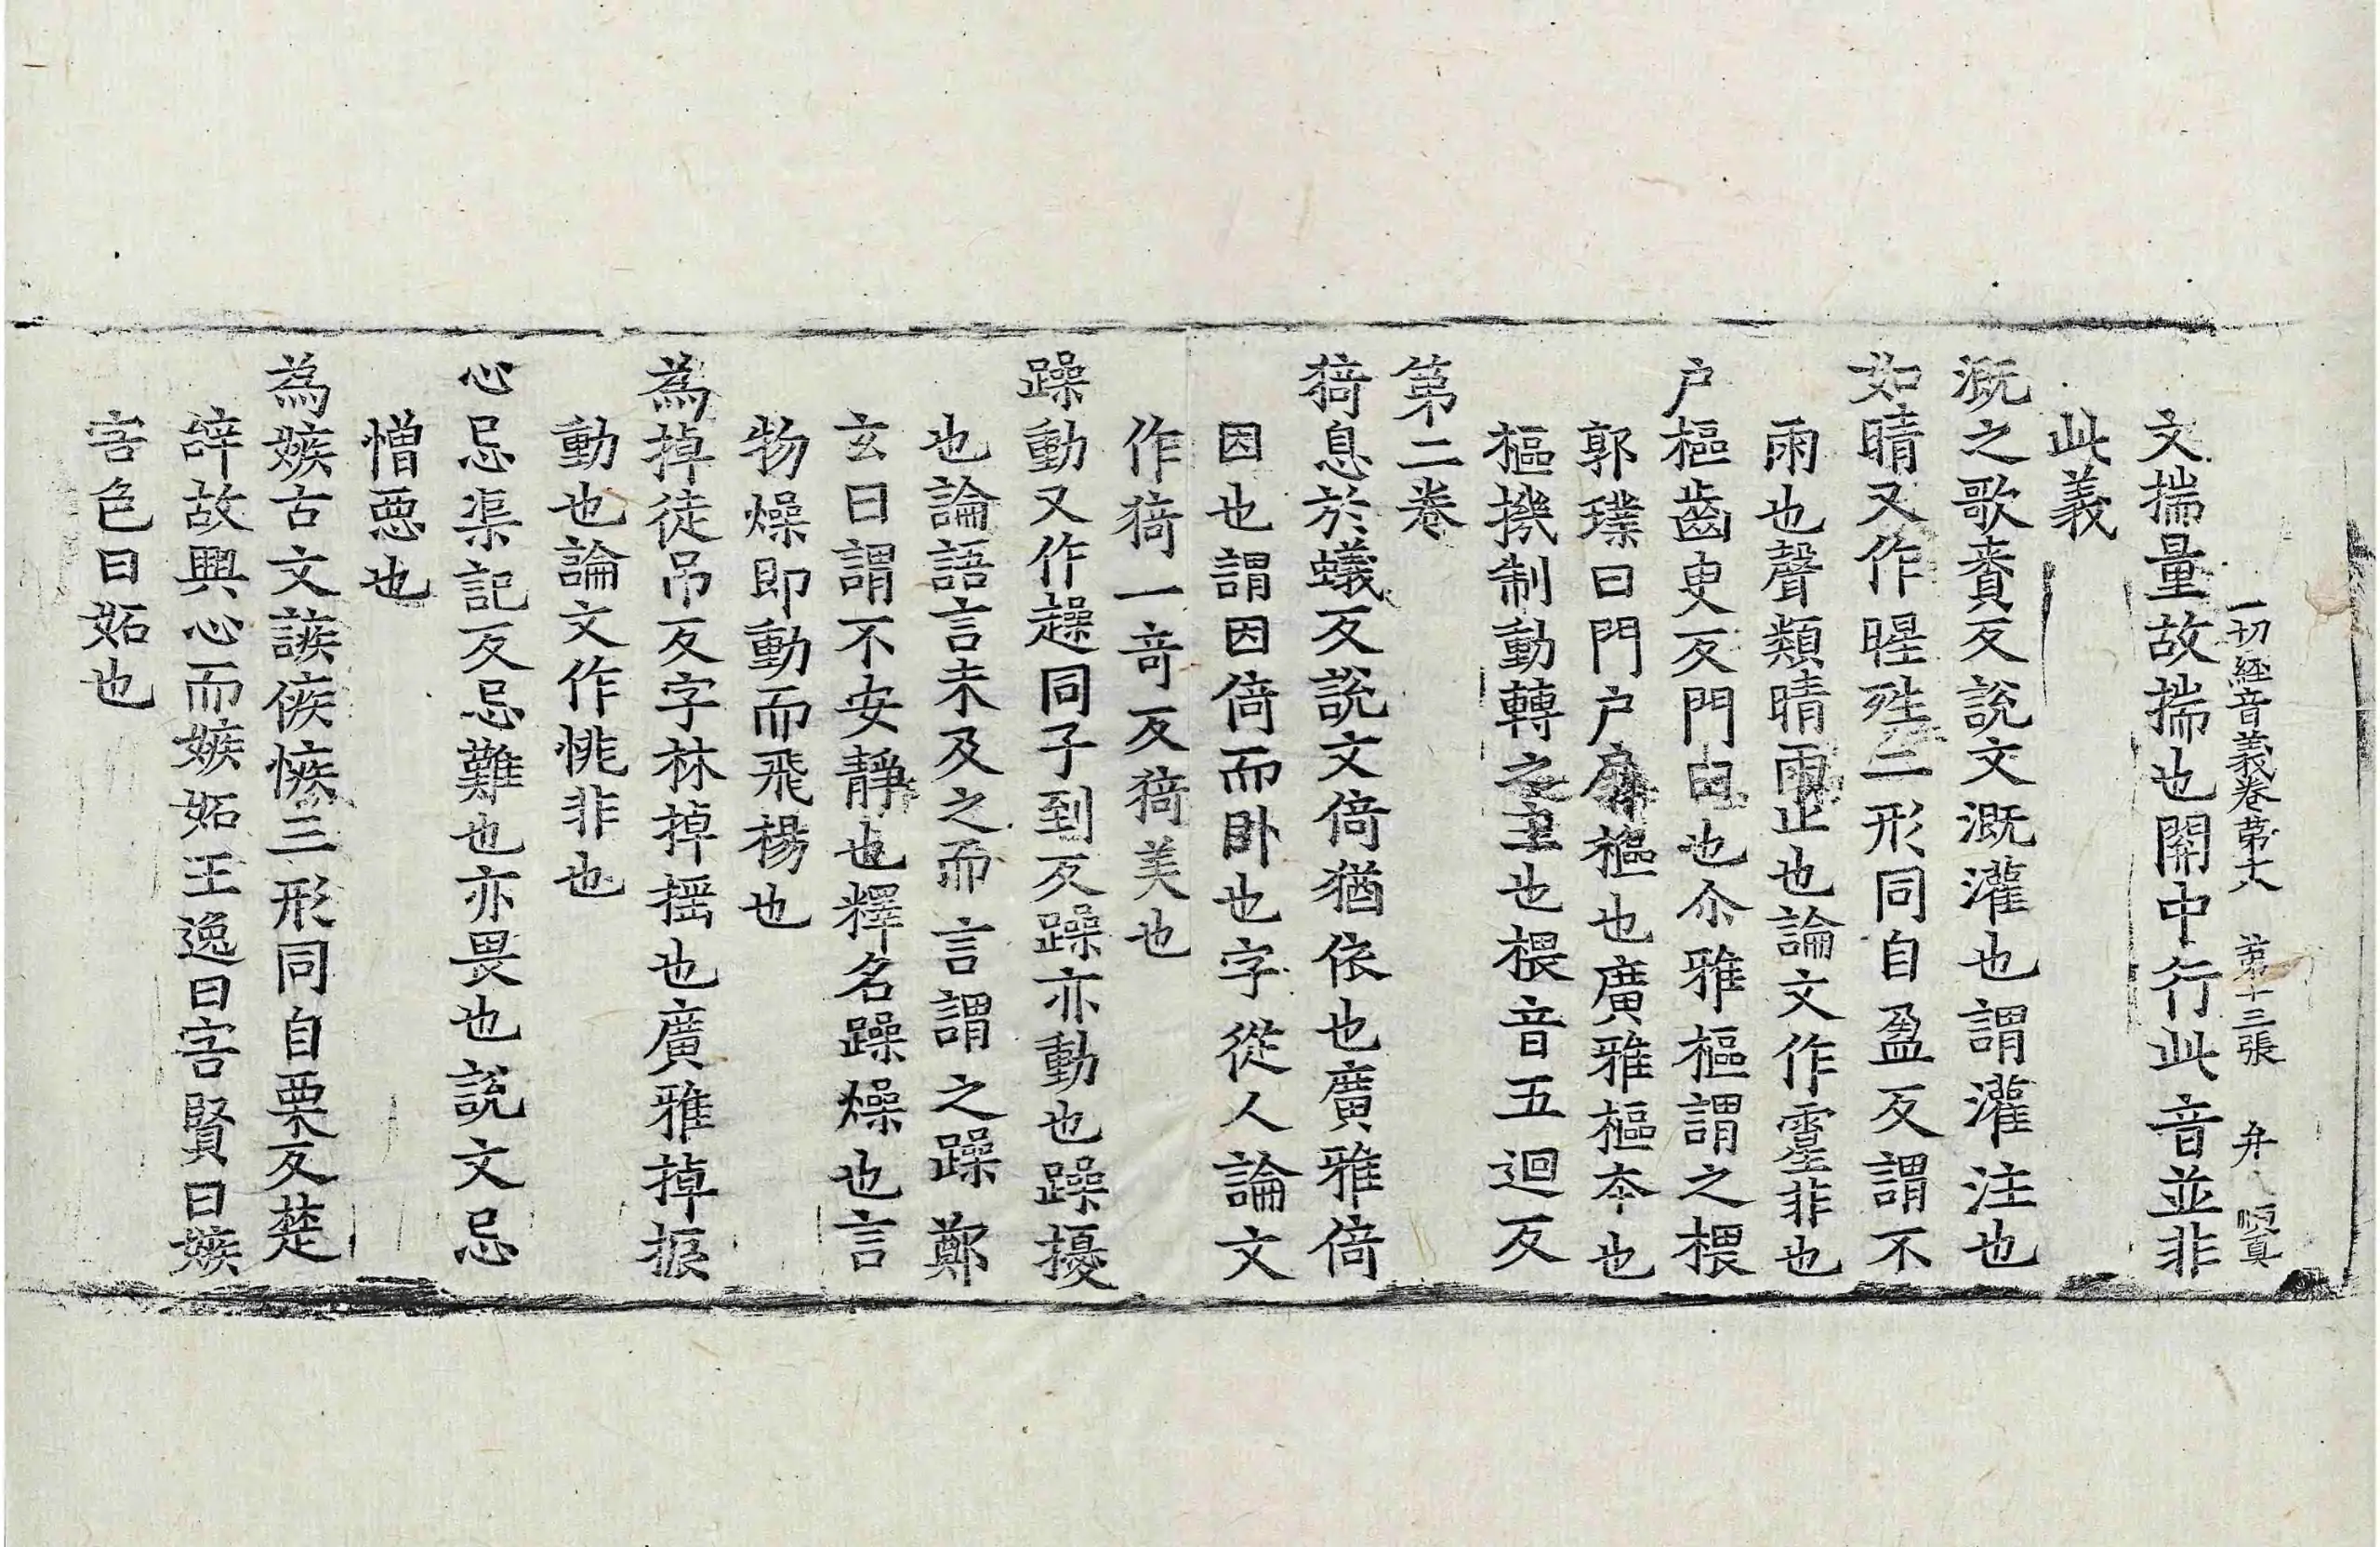 一切經音義卷第十八 第十三張 弁
文揣量故揣也關中行此音並非
此義
溉之歌賚反說文溉灌也謂灌注也
如晴又作暒殅二形同自盈反謂不
雨也聲類晴雨止也論文作霔非也
户樞齒臾反門臼也尒雅樞謂之椳
郭璞曰門户扉樞也廣雅樞夲也
樞機制動轉之主也椳音五迴反
第二卷
猗息於蟻反說文倚猶依也廣雅倚
因也謂因倚而卧也字從人論文
作猗一奇反猗美也
躁動又作趮同子到反躁亦動也躁擾
也論語言未及之而言謂之躁鄭
玄曰謂不安静也釋名躁燥也言
物燥即動而飛楊也
為掉徒吊反字林掉摇也廣雅掉振
動也論文作恌非也
心忌渠記反忌難也亦畏也說文忌
憎惡也
為嫉古文誺㑵愱三形同自栗反楚
辞故興心而嫉妬王逸曰害賢曰嫉
害色曰妬也